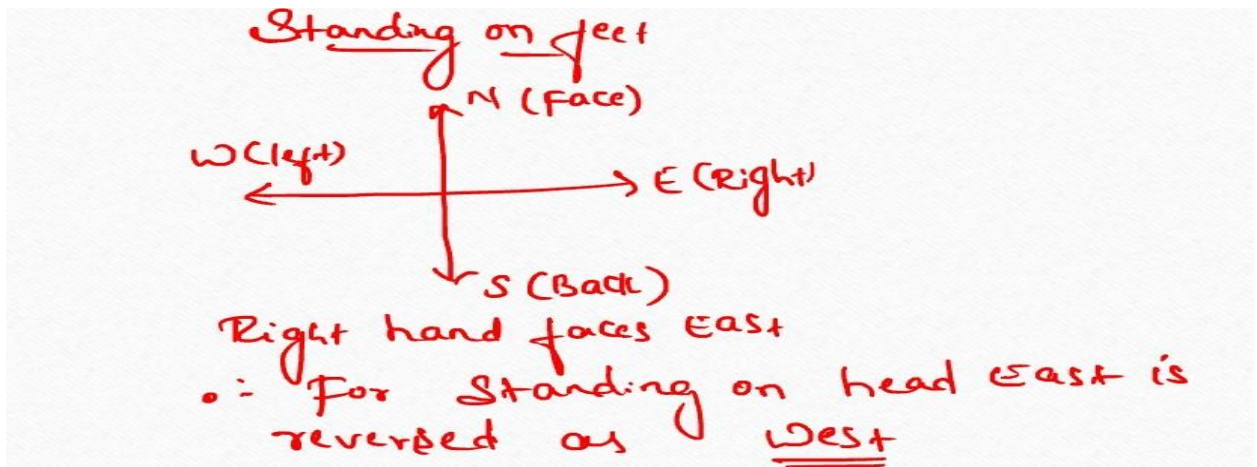 Standing on feet
N (Face)
W (left)
E (Right)
S (Back)
Right hand faces East
∴ For Standing on head East is
reversed as West